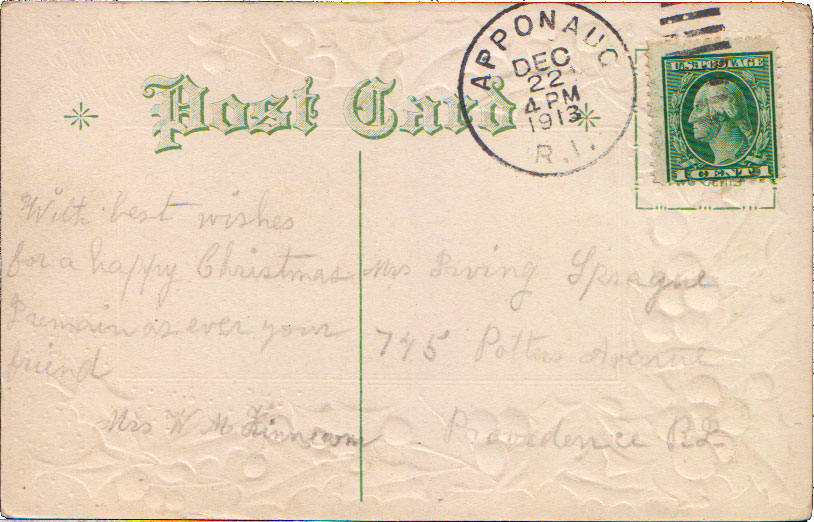 APPONAUG
DEC
22
4 PM
1913
R.I.
U.S. POSTAGE
1 CENT
Post Card
With best wishes
for a happy Christmas
I remain as ever your
friend
Mrs W M
Mrs Irving Sprague
Potters Avenue
Providence R.I.